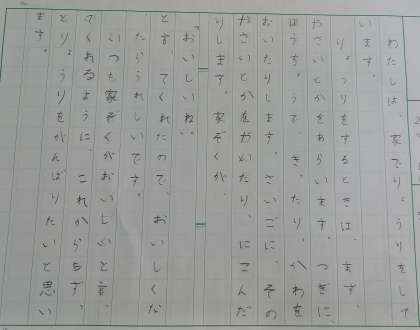 わたしは、家でりょうりをして
います。
りょうりをするときは、まず、
やさいとかをあらいます。つぎに、
ほうちょうで、きったり、かわを
むいたりします。さいごに、その
やさいとかをやいたり、にこんだ
りします。家ぞくが、
「おいしいね。」
と言ってくれたので、おいしくな
たらうれしいです。
いつも家ぞくがおいしいと言っ
てくれるように、これからもず
とりょうりをがんばりたいと思い
ます。